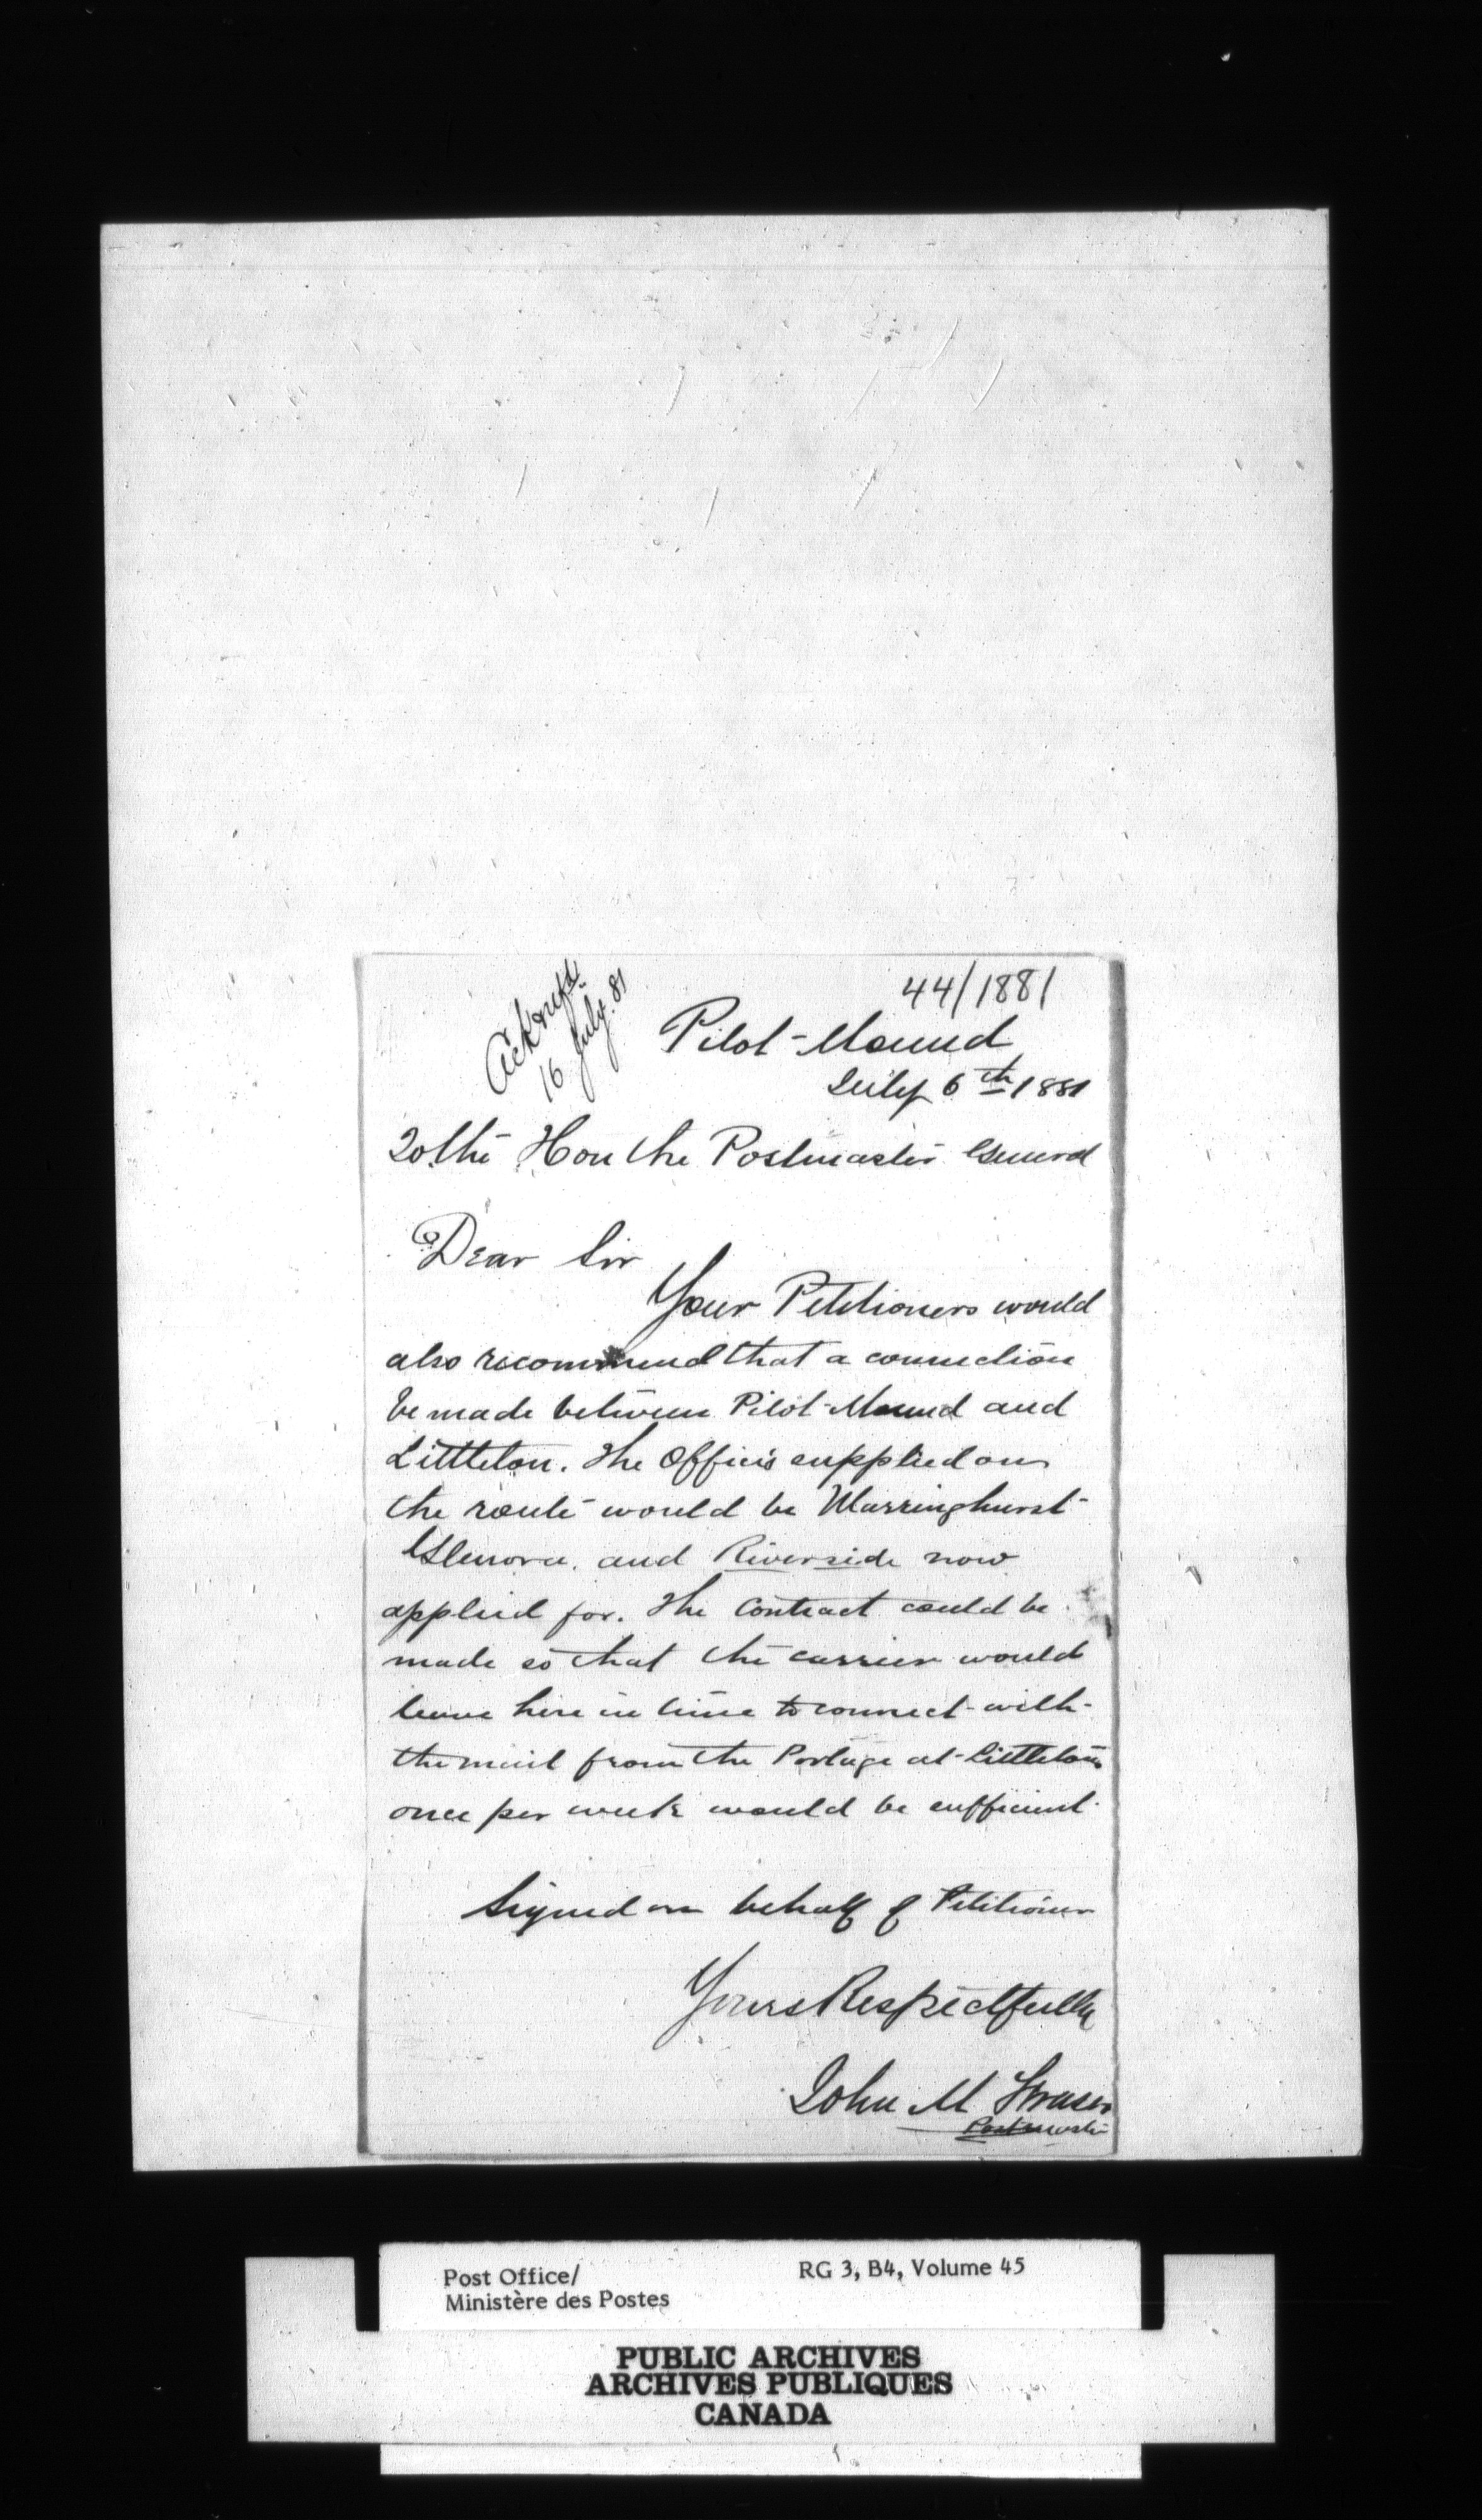 44/1881
16 July. 81
Pilot-Mound
July 6th 1881
To the Hon the Postmaster General
Dear Sir
Your Petitioners would
also recommend that a connection
be made between Pilot-Mound and
Littleton. The Offices supplied on
the route would be Marringhurst
Glenora. and Riverside now
applied for. The Contract could be
made so that the carrier would
leave here in time to connect with
the mail from the Portage at Littleton
once per week would be sufficient.
Signed on behalf of Petitioners
Yours Respectfully
John M Fraser
Postmaster
Post Office/ RG 3, B4, Volume 45
Ministère des Postes
PUBLIC ARCHIVES
ARCHIVES PUBLIQUES
CANADA